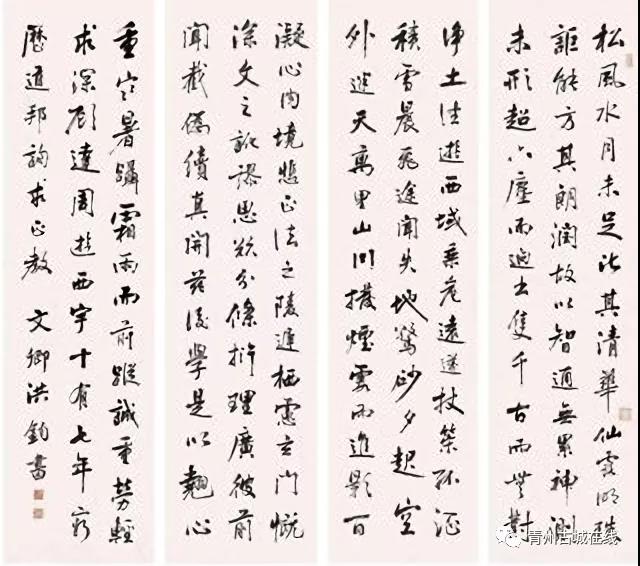 松風水月未足比其清華仙露明珠
詎能方其朗潤故以智通無累神測
未形超六塵而迥出隻千古而無對
淨土往遊西域乘危遠邁杖策孤征
積雪晨飛途間失地驚砂夕起空
外迷天萬里山川撥煙雲而進影百
凝心內境悲正法之陵遲栖慮玄門慨
深文之訛謬思欲分條析理廣彼前
聞截偽續真開茲後學是以翹心
重寒暑躡霜雨而前蹤誠重勞輕
求深願達周遊西宇十有七年窮
歷道邦詢求正教 文卿洪鈞書
青州古城在线